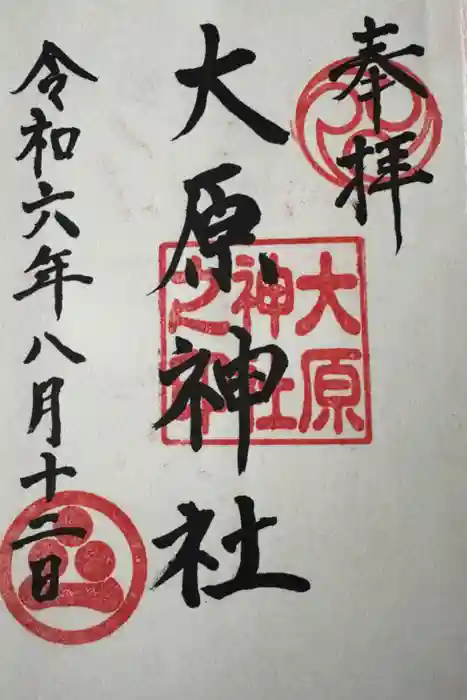 奉拝
大原神社
大原
神社
之印
令和六年八月十二日